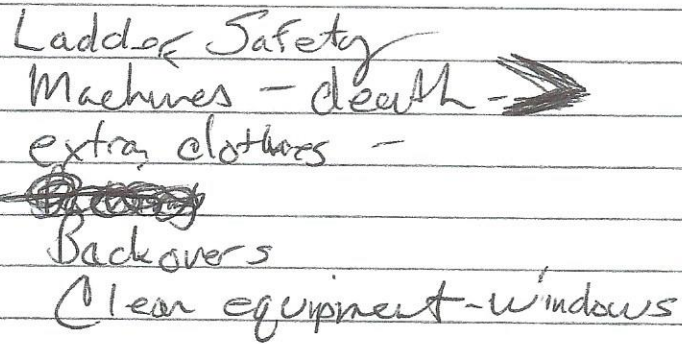 Ladder Safety
Machines - death -
extra clothes -
Backovers
Clean equipment - windows